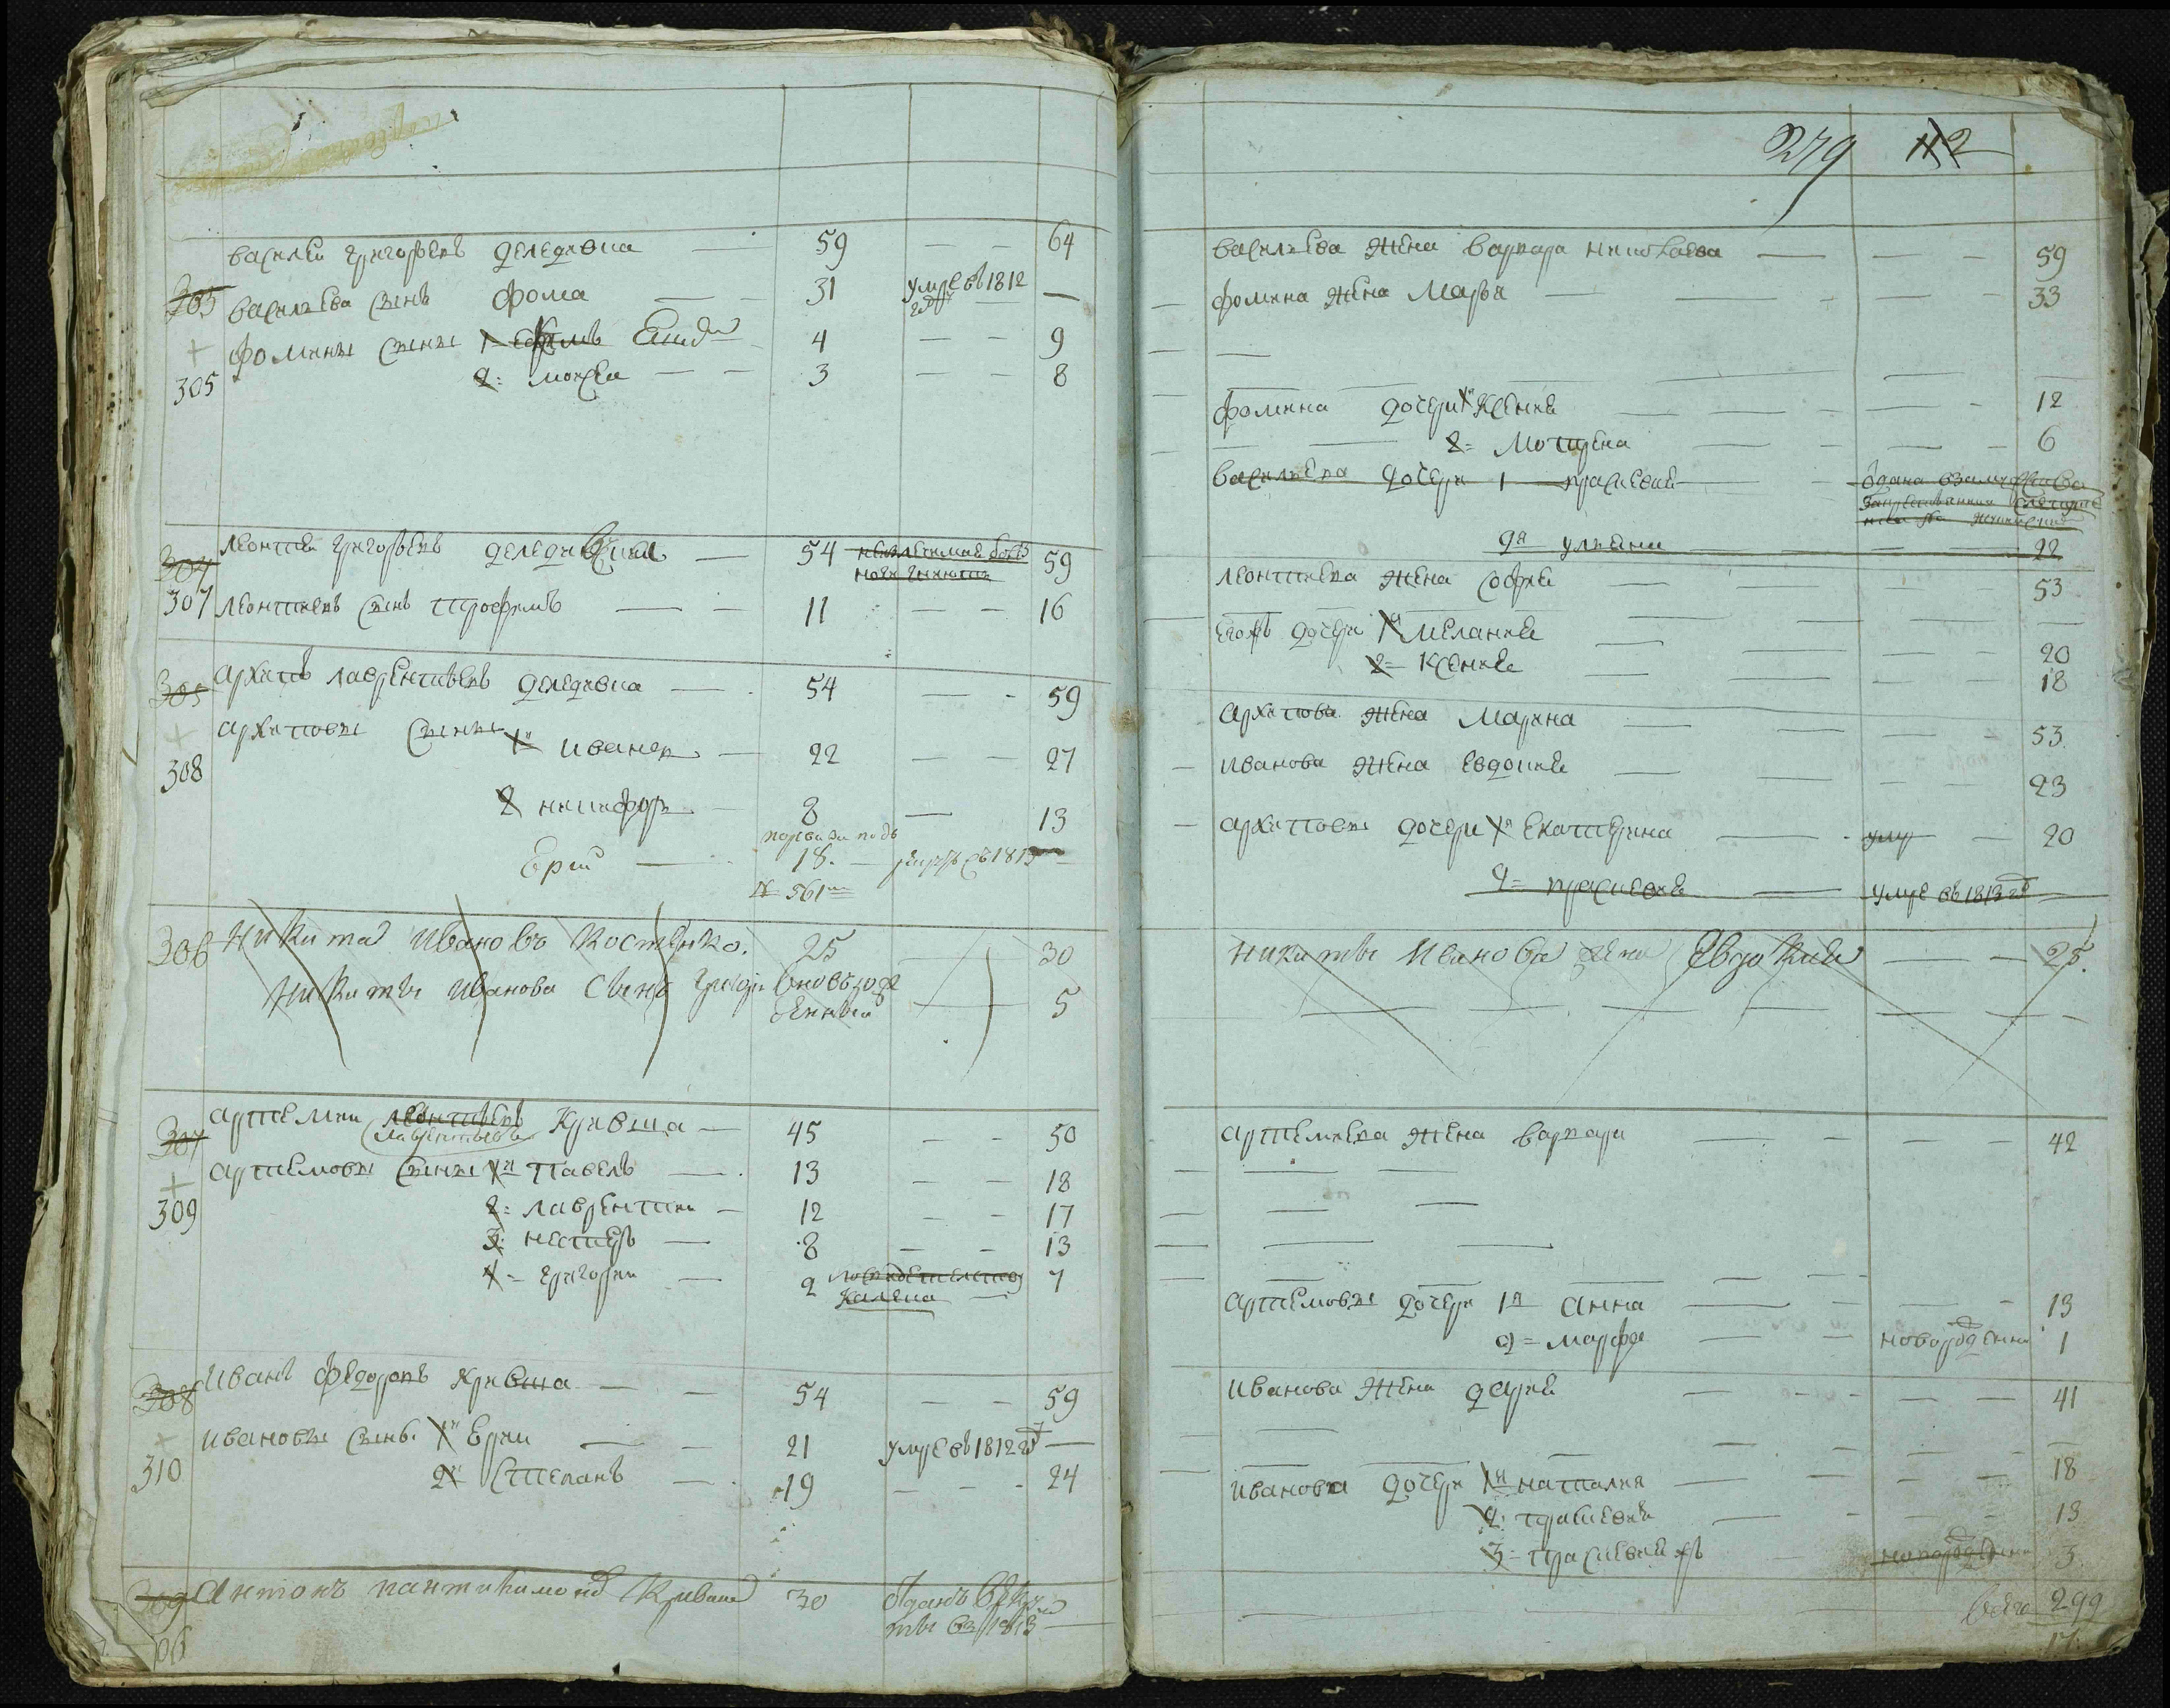 василеи григорьевъ деледивша — 59 — — 64
303 васильева сынъ фома — — 31 умре въ 1812 году —
+ фомины сыны 1 — 4 — — 9
305 2: моисеи — — 3 — — 8
304 леонтеи григорьевъ — 54 59
307 леонтиевъ сынъ трофимъ — — 11 — — 16
305 архипъ лаврентиевъ деледивша — 54 — - 59
+ архиповы сыны 1й иванъ — 22 — — 27
308
2 никифоръ — 8 — 13
Ерей — 18. — въ 1813
№ 561
306 Никита Ивановъ Костенко. 25 — 30
Никиты Иванова Сынъ Григори вновърожденный — 5
307 артемеи леонтиевъ Кривша — 45 — — 50
лаврентьевъ
+ артемовы сыны 1й павелъ — 13 — — 18
309 2: лаврентеи — 12 — — 17
3: нестеръ — 8 — — 13
4 = григореи — 2 7
калека
308 Иванъ федоровъ кривша — — 54 — — 59
+ Ивановы сынъ 1й Ереи — — 21 умре въ 1812 —
310 2й Степанъ — 19 — — 24
309 Антонъ пантилимонов Кривша 30 отданъ в рекруты въ 1813 —
279 112
васильева жена варвара николаева — — — 59
фомина жена марья — — — 33
фомина дочери 1я ксения — — — 12
2= мотрена — — — 6
васильева дочери 1 — праскевия —
2я ульяна — — 22
леонтиева жена софия — — — 53
Егожъ дочери 1я мелания — — — 20
2= ксения — — — 18
архипова жена марина — — — 53
Иванова жена евдокия — — — 23
архиповы дочери 1я екатерина — умр — 20
2= праскевия — умре въ 1813 —
никиты Иванова жена Евдокия — — 25.
артемиева жена варвара — — — 42
артемовы дочери 1я анна — — — 13
2= марфа — новорожденна 1
Иванова жена дария — — — 41
Иванова дочери 1я наталия — — — 18
2: праскевия — — — 13
3= праскевия жъ — новорожденна 3
всего 299